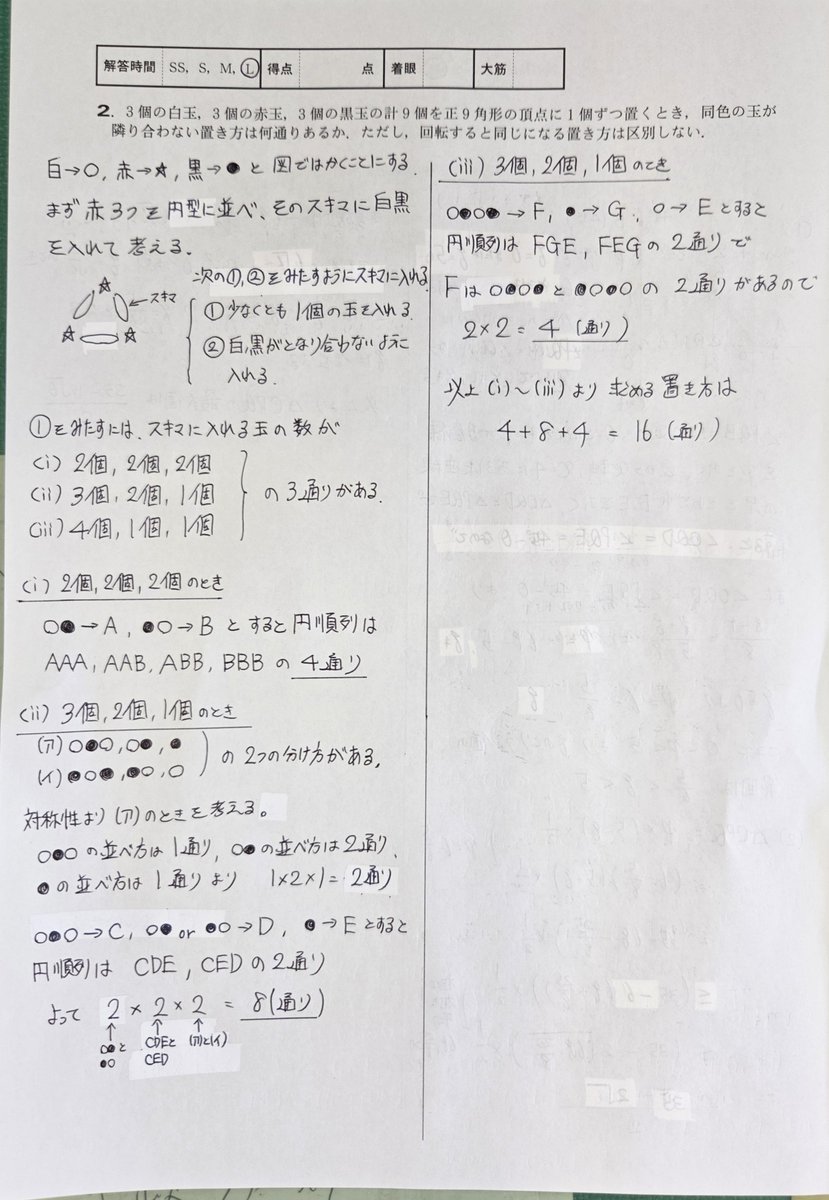 解答時間 SS, S, M, Ⓛ 得点 点 着眼 大筋
2. 3個の白玉, 3個の赤玉, 3個の黒玉の計9個を正9角形の頂点に1個ずつ置くとき, 同色の玉が
隣り合わない置き方は何通りあるか. ただし, 回転すると同じになる置き方は区別しない.
白→○, 赤→☆, 黒→● と 図ではかくことにする.
まず赤3つを円型に並べ、そのスキマに白黒
を入れて考える.
☆
←スキマ
☆ ☆
次の①,②をみたすようにスキマに入れる
①少なくとも1個の玉を入れる.
②白,黒がとなり合わないように
入れる.
①をみたすには、スキマに入れる玉の数が
(i) 2個, 2個, 2個
(ii) 3個, 2個, 1個
(iii) 4個, 1個, 1個
の3通りがある.
(i) 2個, 2個, 2個のとき
○●→A, ●○→B とすると円順列は
AAA, AAB, ABB, BBB の 4通り
(ii) 3個, 2個, 1個のとき
(ア) ○●○, ○●, ●
(イ) ●○●, ●○, ○
の2つの分け方がある.
対称性より(ア)のときを考える。
○●○の並べ方は1通り, ○●の並べ方は2通り,
●の並べ方は1通りより 1×2×1=2通り
○●○→C, ○● or ●○→D, ●→E とすると
円順列は CDE, CED の2通り
よって 2 × 2 × 2 = 8(通り)
↑ ↑ ↑
○●と CDEと (ア)と(イ)
●○ CED
(iii) 3個, 2個, 1個 のとき
○●○●→F, ●→G, ○→Eとすると
円順列は FGE, FEG の 2通りで
Fは○●○●と●○●○の 2通りがあるので
2×2=4(通り)
以上(i)~(iii)より 求める置き方は
4+8+4 = 16(通り)